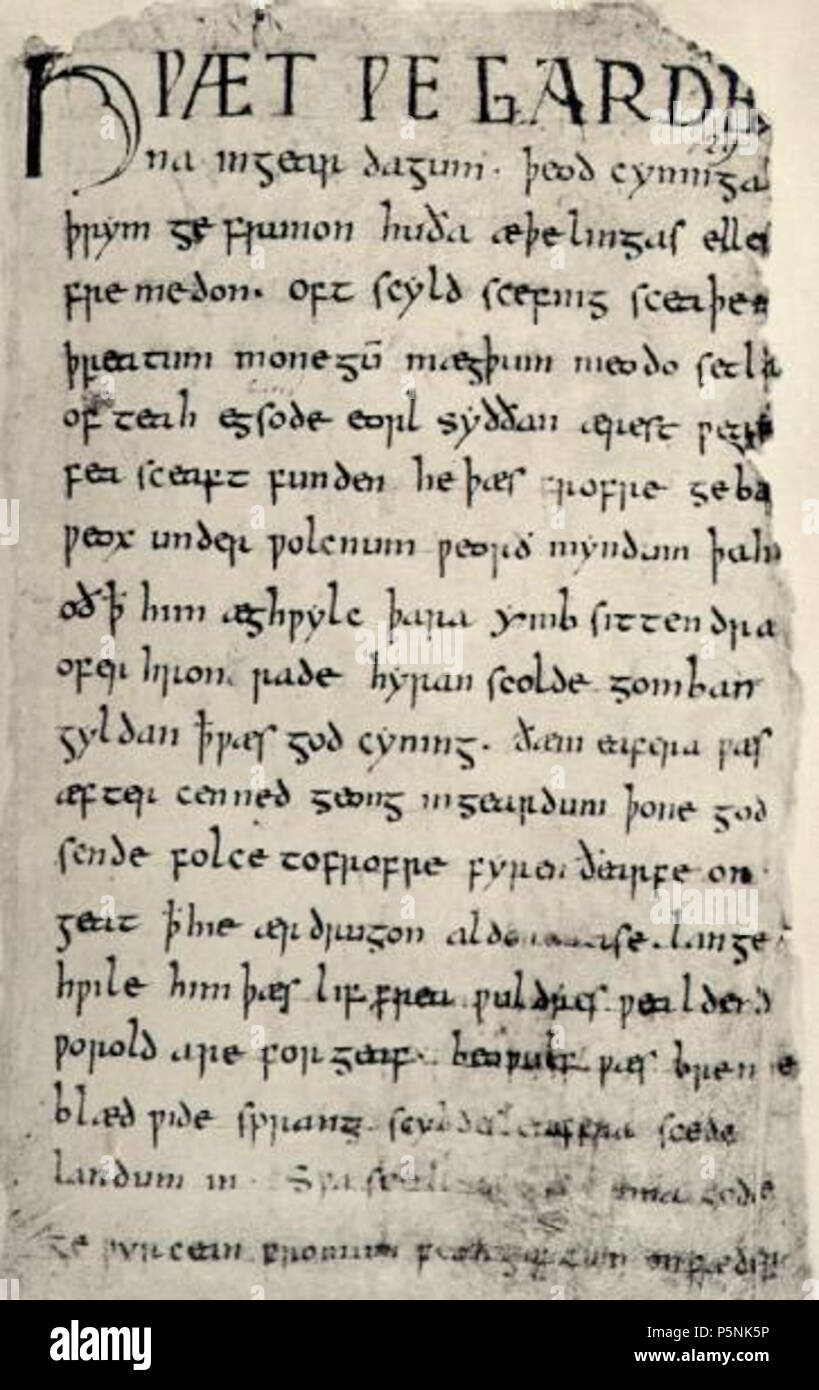 HǷÆT ǷE GARDE
na ingear dagum. þeod cyninga
þrym ge frunon huða æþelingas elle
fremedon. oft scyld scefing sceaþe
þreatum monegū mægþum meodo setla
of teah egsode eorl syððan ærest ƿear
fea sceaft funden he þæs frofre geba
ƿeox under ƿolcnum ƿeorð myndum þah
oð ꝥ him æghƿylc þara ymb sittendra
ofer hron rade hyran scolde gomban
gyldan ꝥ ƿæs god cyning. ðæm eafera ƿæs
æfter cenned geong ingeardum þone god
sende folce tofrofre fyren ðearfe on
geat ꝥ hie ær drugon aldor ase. lange
hƿile him þæs lif frea ƿuldres ƿealdend
ƿorold are for geaf. beoƿulf ƿæs breme
blæd ƿide sprang scyldes eafera scede
landum in. Sƿa sceal ma gode
ge ƿyrcean fromum feoh giftum on fæder
alamy
Image ID: P5NK5P
www.alamy.com